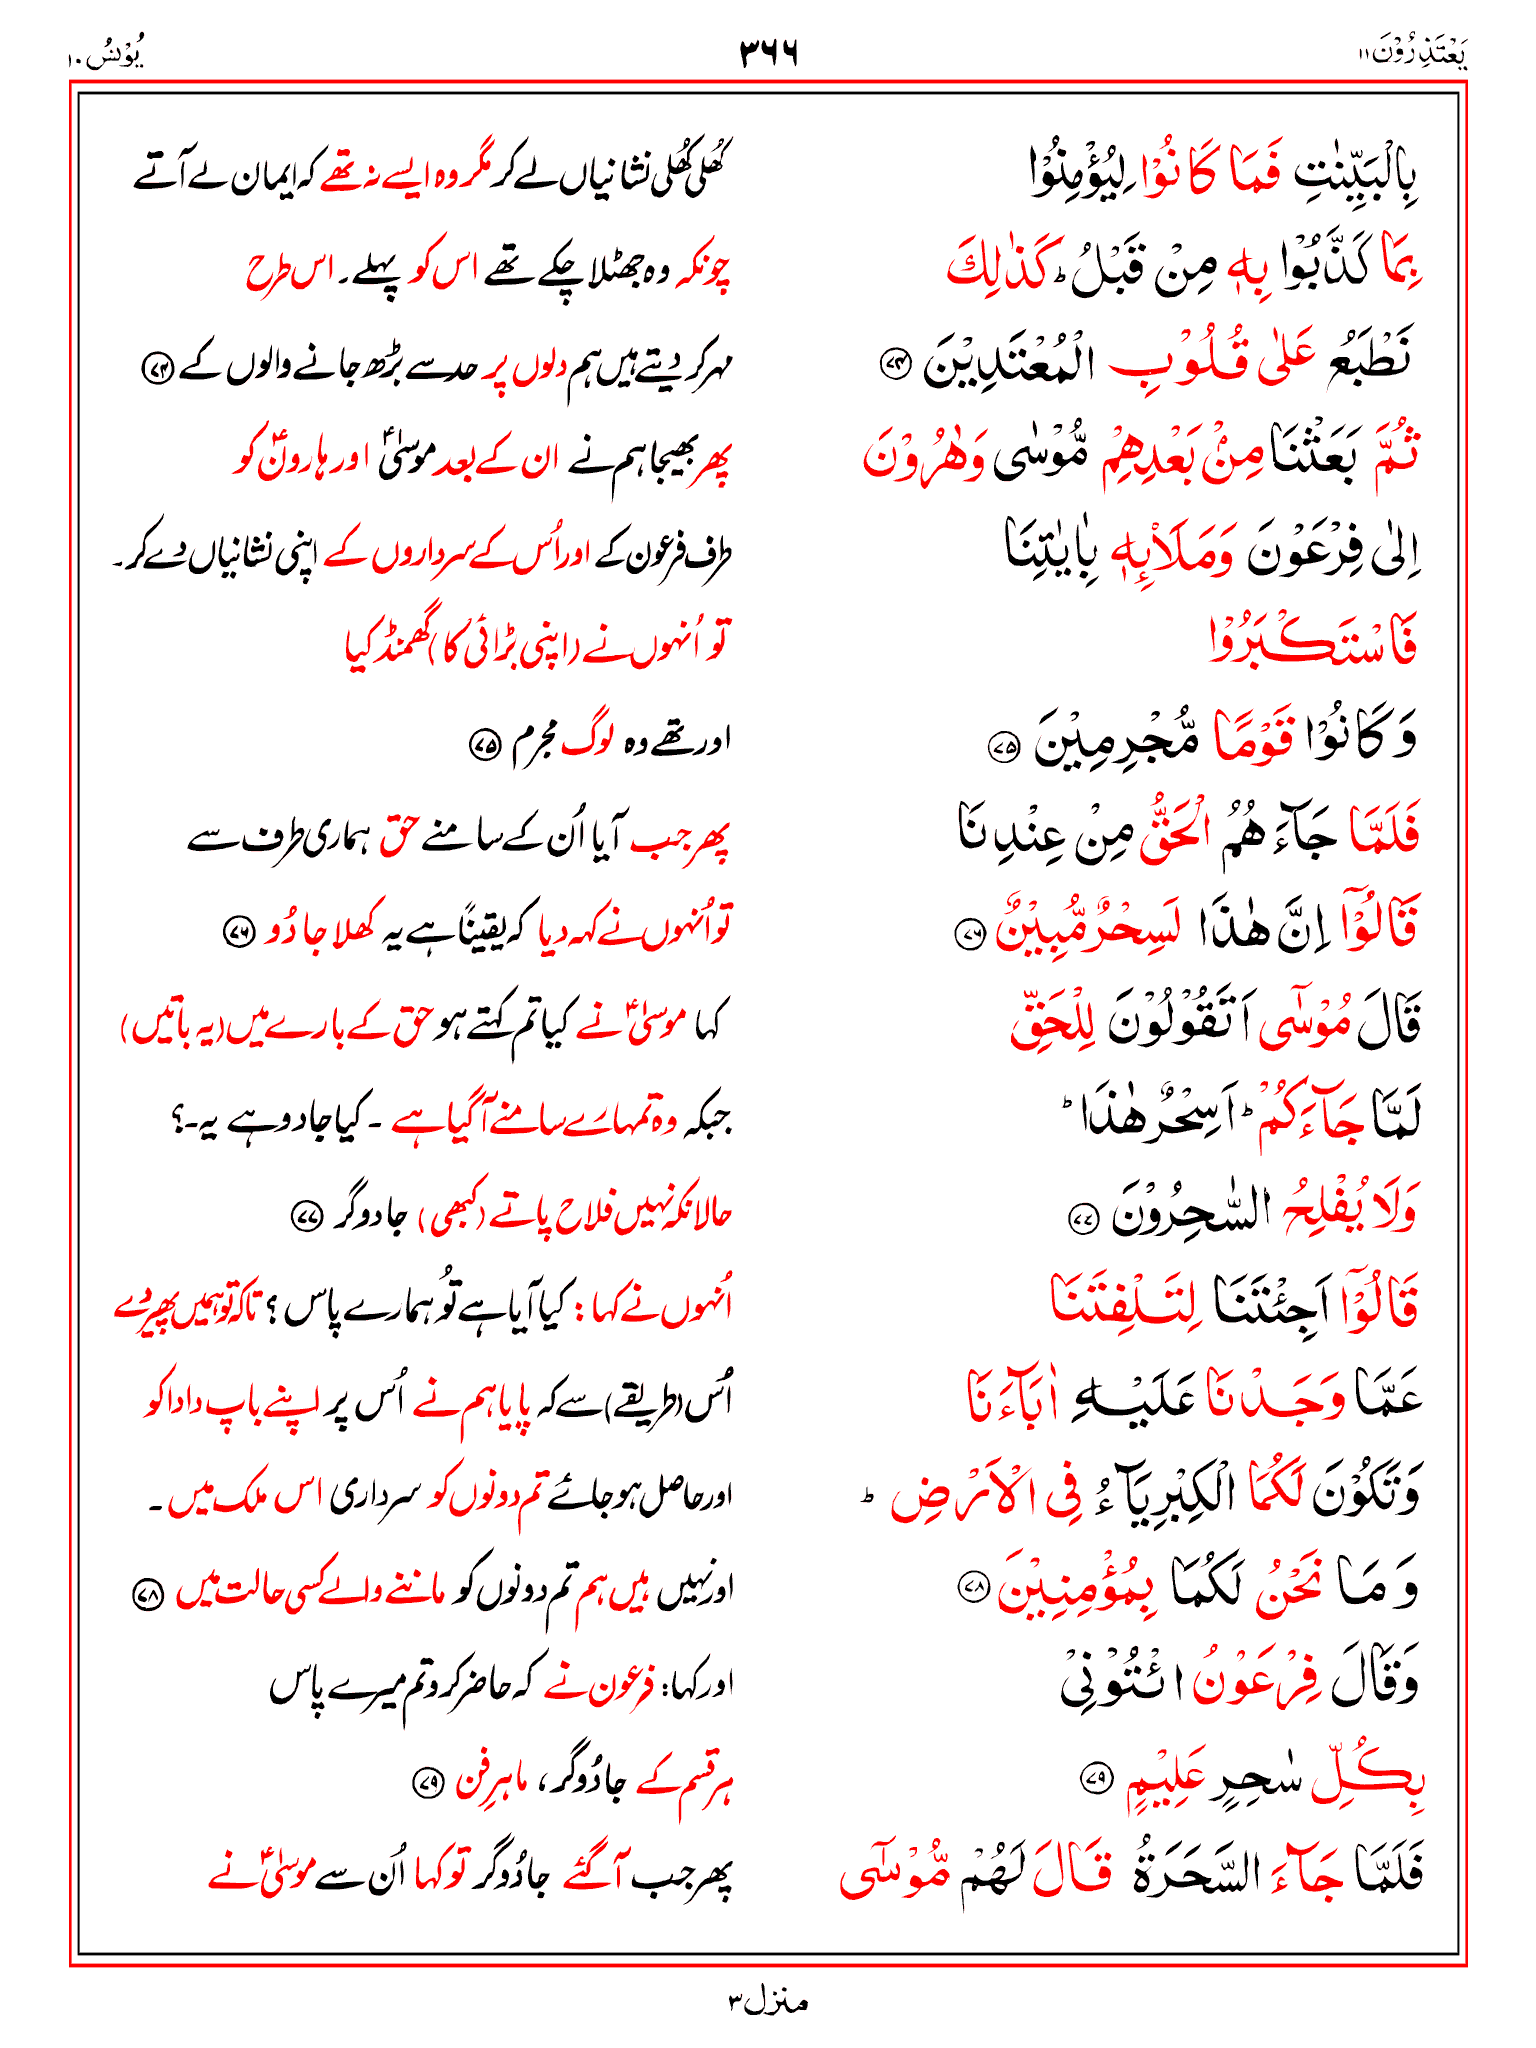 يَعْتَذِرُوْنَ ۱۱ ۳۶۶ يُوْنُسُ ۱۰
بِالْبَيِّنٰتِ فَمَا كَانُوْا لِيُؤْمِنُوْا کھُلی کھُلی نشانیاں لے کر مگر وہ ایسے نہ تھے کہ ایمان لے آتے
بِمَا كَذَّبُوْا بِهٖ مِنْ قَبْلُ ؕ كَذٰلِكَ چونکہ وہ جھٹلا چکے تھے اس کو پہلے۔ اس طرح
نَطْبَعُ عَلٰى قُلُوْبِ الْمُعْتَدِيْنَ ﴿۷۴﴾ مہر کر دیتے ہیں ہم دلوں پر حد سے بڑھ جانے والوں کے ﴿۷۴﴾
ثُمَّ بَعَثْنَا مِنْۢ بَعْدِهِمْ مُّوْسٰى وَهٰرُوْنَ پھر بھیجا ہم نے ان کے بعد موسیٰؑ اور ہارونؑ کو
اِلٰى فِرْعَوْنَ وَمَلَا۟ئِهٖ بِاٰيٰتِنَا طرف فرعون کے اور اُس کے سرداروں کے اپنی نشانیاں دے کر۔
فَاسْتَكْبَرُوْا تو اُنہوں نے (اپنی بڑائی کا) گھمنڈ کیا
وَكَانُوْا قَوْمًا مُّجْرِمِيْنَ ﴿۷۵﴾ اور تھے وہ لوگ مجرم ﴿۷۵﴾
فَلَمَّا جَآءَهُمُ الْحَقُّ مِنْ عِنْدِنَا پھر جب آیا اُن کے سامنے حق ہماری طرف سے
قَالُوْٓا اِنَّ هٰذَا لَسِحْرٌ مُّبِيْنٌ ﴿۷۶﴾ تو اُنہوں نے کہہ دیا کہ یقیناً ہے یہ کھلا جادُو ﴿۷۶﴾
قَالَ مُوْسٰٓى اَتَقُوْلُوْنَ لِلْحَقِّ کہا موسیٰؑ نے کیا تم کہتے ہو حق کے بارے میں (یہ باتیں)
لَمَّا جَآءَكُمْ ؕ اَسِحْرٌ هٰذَا ؕ جبکہ وہ تمہارے سامنے آ گیا ہے ۔ کیا جادو ہے یہ۔؟
وَلَا يُفْلِحُ السّٰحِرُوْنَ ﴿۷۷﴾ حالانکہ نہیں فلاح پاتے (کبھی) جادوگر ﴿۷۷﴾
قَالُوْٓا اَجِئْتَنَا لِتَلْفِتَنَا اُنہوں نے کہا: کیا آیا ہے تُو ہمارے پاس ؟ تاکہ تو ہمیں پھیر دے
عَمَّا وَجَدْنَا عَلَيْهِ اٰبَآءَنَا اُس (طریقے) سے کہ پایا ہم نے اُس پر اپنے باپ دادا کو
وَتَكُوْنَ لَكُمَا الْكِبْرِيَآءُ فِى الْاَرْضِ ؕ اور حاصل ہو جائے تم دونوں کو سرداری اس ملک میں ۔
وَمَا نَحْنُ لَكُمَا بِمُؤْمِنِيْنَ ﴿۷۸﴾ اور نہیں ہیں ہم تم دونوں کو ماننے والے کسی حالت میں ﴿۷۸﴾
وَقَالَ فِرْعَوْنُ ائْتُوْنِىْ اور کہا: فرعون نے کہ حاضر کرو تم میرے پاس
بِكُلِّ سٰحِرٍ عَلِيْمٍ ﴿۷۹﴾ ہر قسم کے جادُوگر، ماہرِ فن ﴿۷۹﴾
فَلَمَّا جَآءَ السَّحَرَةُ قَالَ لَهُمْ مُّوْسٰٓى پھر جب آ گئے جادُوگر تو کہا اُن سے موسیٰؑ نے
منزل ۳